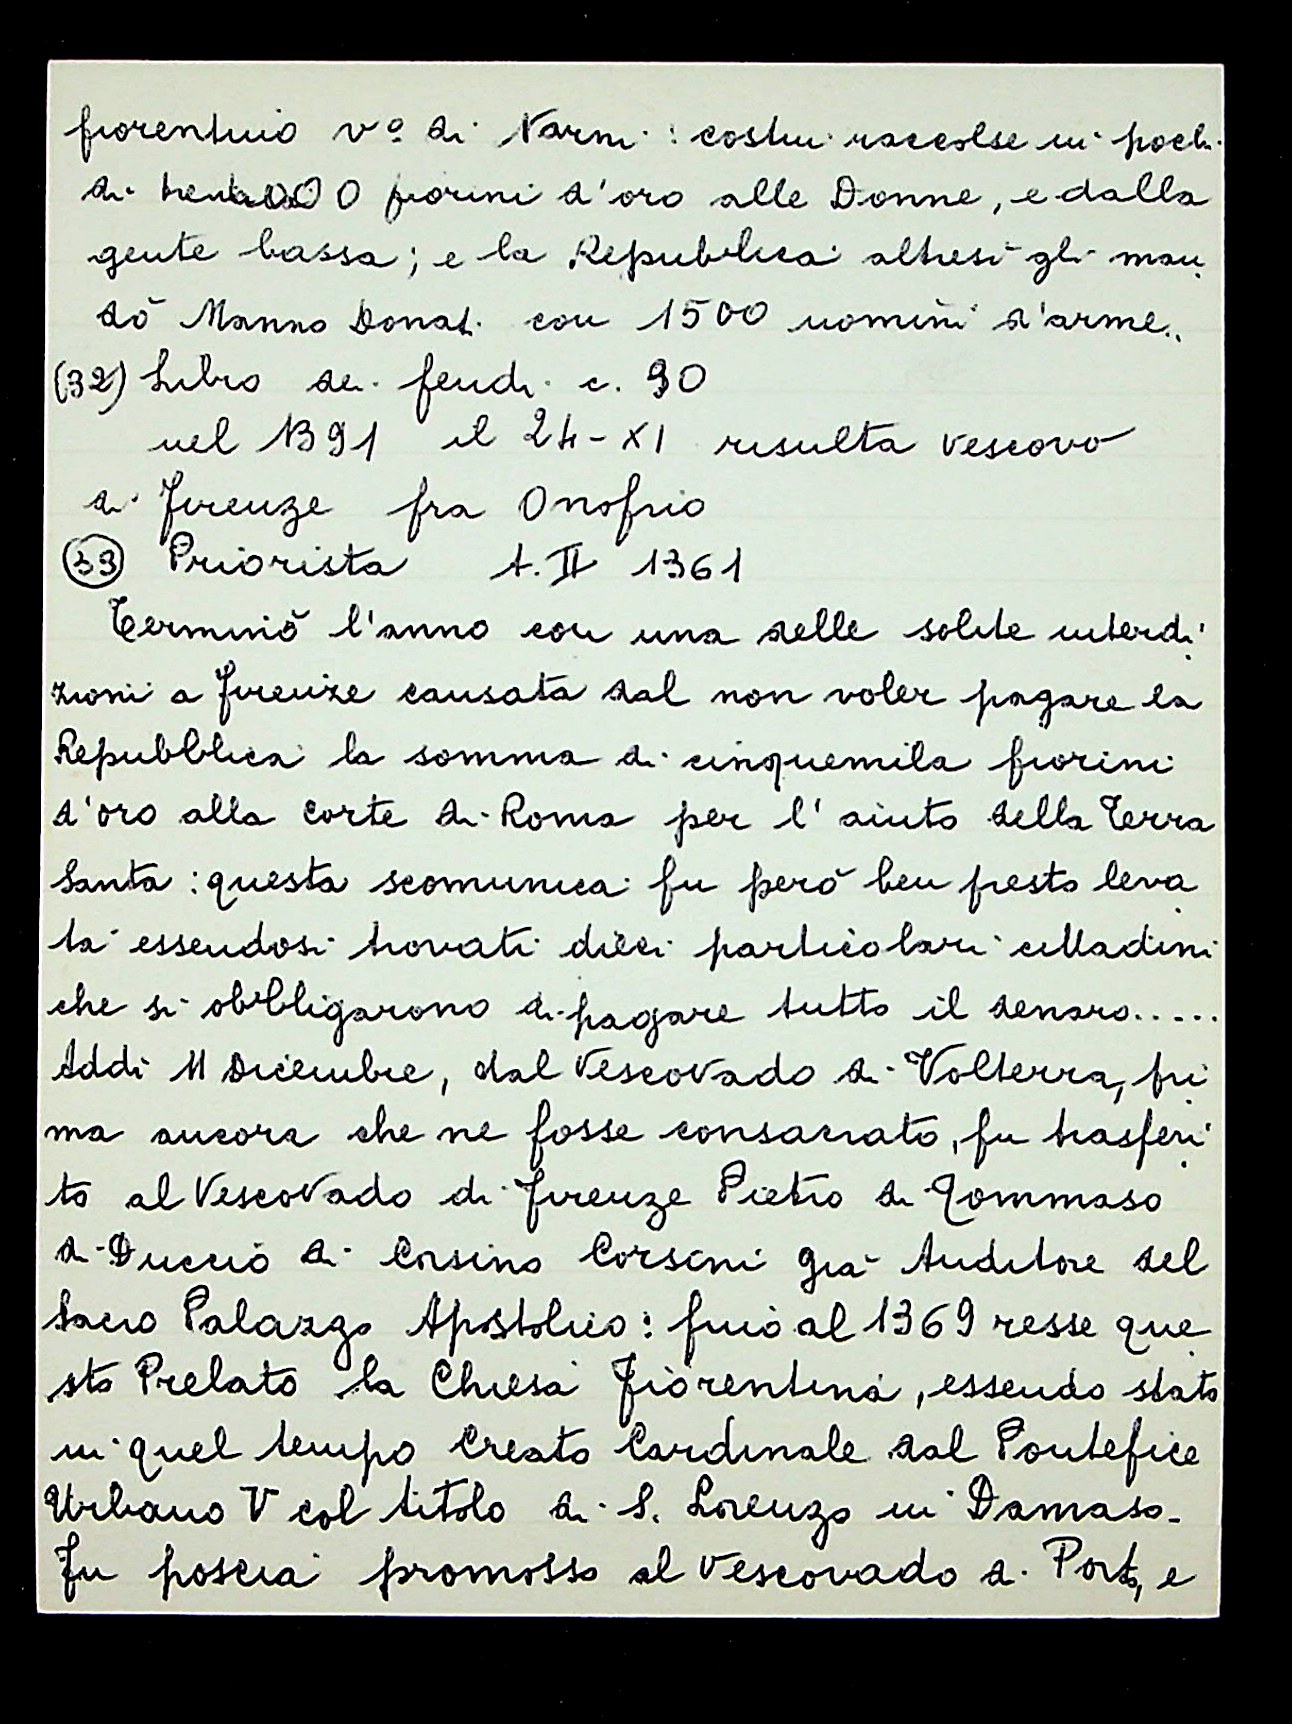 fiorentino vº di Narni: costui raccolse in pochi
di 0 fiorini d'oro alle Donne, e dalla
gente bassa; e la Repubblica altresì gli man
dò Manno Donati con 1500 uomini d'arme..
(32) Libro dei feudi c. 90
nel 1391 il 24-XI risulta vescovo
di Firenze fra Onofrio
(33) Priorista t. II 1361
Terminò l'anno con una delle solite interdi
zioni a Firenze causata dal non voler pagare la
Repubblica la somma di cinquemila fiorini
d'oro alla Corte di Roma per l'aiuto della Terra
Santa: questa scomunica fu però ben presto leva
ta essendosi trovati dieci particolari cittadini
che si obbligarono di pagare tutto il denaro.....
Addì 11 Dicembre, dal Vescovado di Volterra, pri
ma ancora che ne fosse consacrato, fu trasferi
to al Vescovado di Firenze Pietro di Tommaso
di Duccio di Corsino Corsini già Auditore del
Sacro Palazzo Apostolico: fino al 1369 resse que
sto Prelato la Chiesa Fiorentina, essendo stato
in quel tempo Creato Cardinale dal Pontefice
Urbano V col titolo di S. Lorenzo in Damaso.
Fu poscia promosso al Vescovado di Porto, e